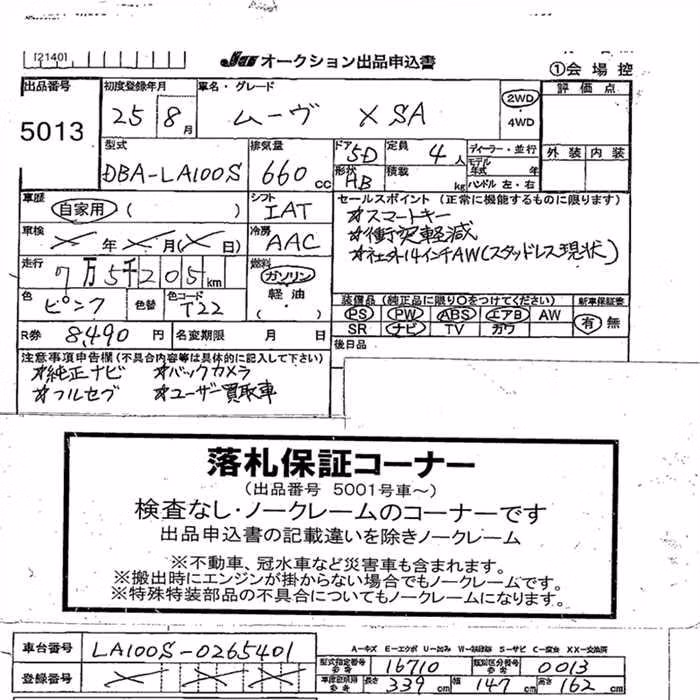 [2140]
JU オークション出品申込書
①会 場 控
出品番号 5013
初度登録年月 25 8月
車名・グレード ムーヴ X SA
2WD
4WD
評 価 点
外 装 内 装
型式 DBA-LA100S
排気量 660cc
ドア 5D
形状 HB
定員 4人
積載 kg
ディーラー・並行
モデル年式 年
ハンドル 左・右
車歴 自家用 ( )
シフト IAT
車検 年 月( 日)
冷房 AAC
走行 7万5千205km
燃料 ガソリン
軽油
( ・ )
色 ピンク
色替
色コード T22
セールスポイント(正常に機能するものに限ります)
*スマートキー
*衝突軽減
*社外14インチAW(スタッドレス現状)
装備品(純正品に限り○をつけてください)
新車保証書
PS PW ABS エアB AW
SR ナビ TV カワ
有 無
R券 8,490円
名変期限 月 日
後日品
注意事項申告欄(不具合内容等は具体的に記入して下さい)
*純正ナビ *バックカメラ
*フルセグ *ユーザー買取車
落札保証コーナー
(出品番号 5001号車~)
検査なし・ノークレームのコーナーです
出品申込書の記載違いを除きノークレーム
※不動車、冠水車など災害車も含まれます。
※搬出時にエンジンが掛からない場合でもノークレームです。
※特殊特装部品の不具合についてもノークレームになります。
車台番号 LA100S-0265401
A-キズ E-エクボ U-凹み S-サビ XX-交換済
登録番号
型式指定番号 参考 16710
類別区分番号 参考 0013
車度証明 参考 長さ 339cm 幅 147cm 高さ 162cm